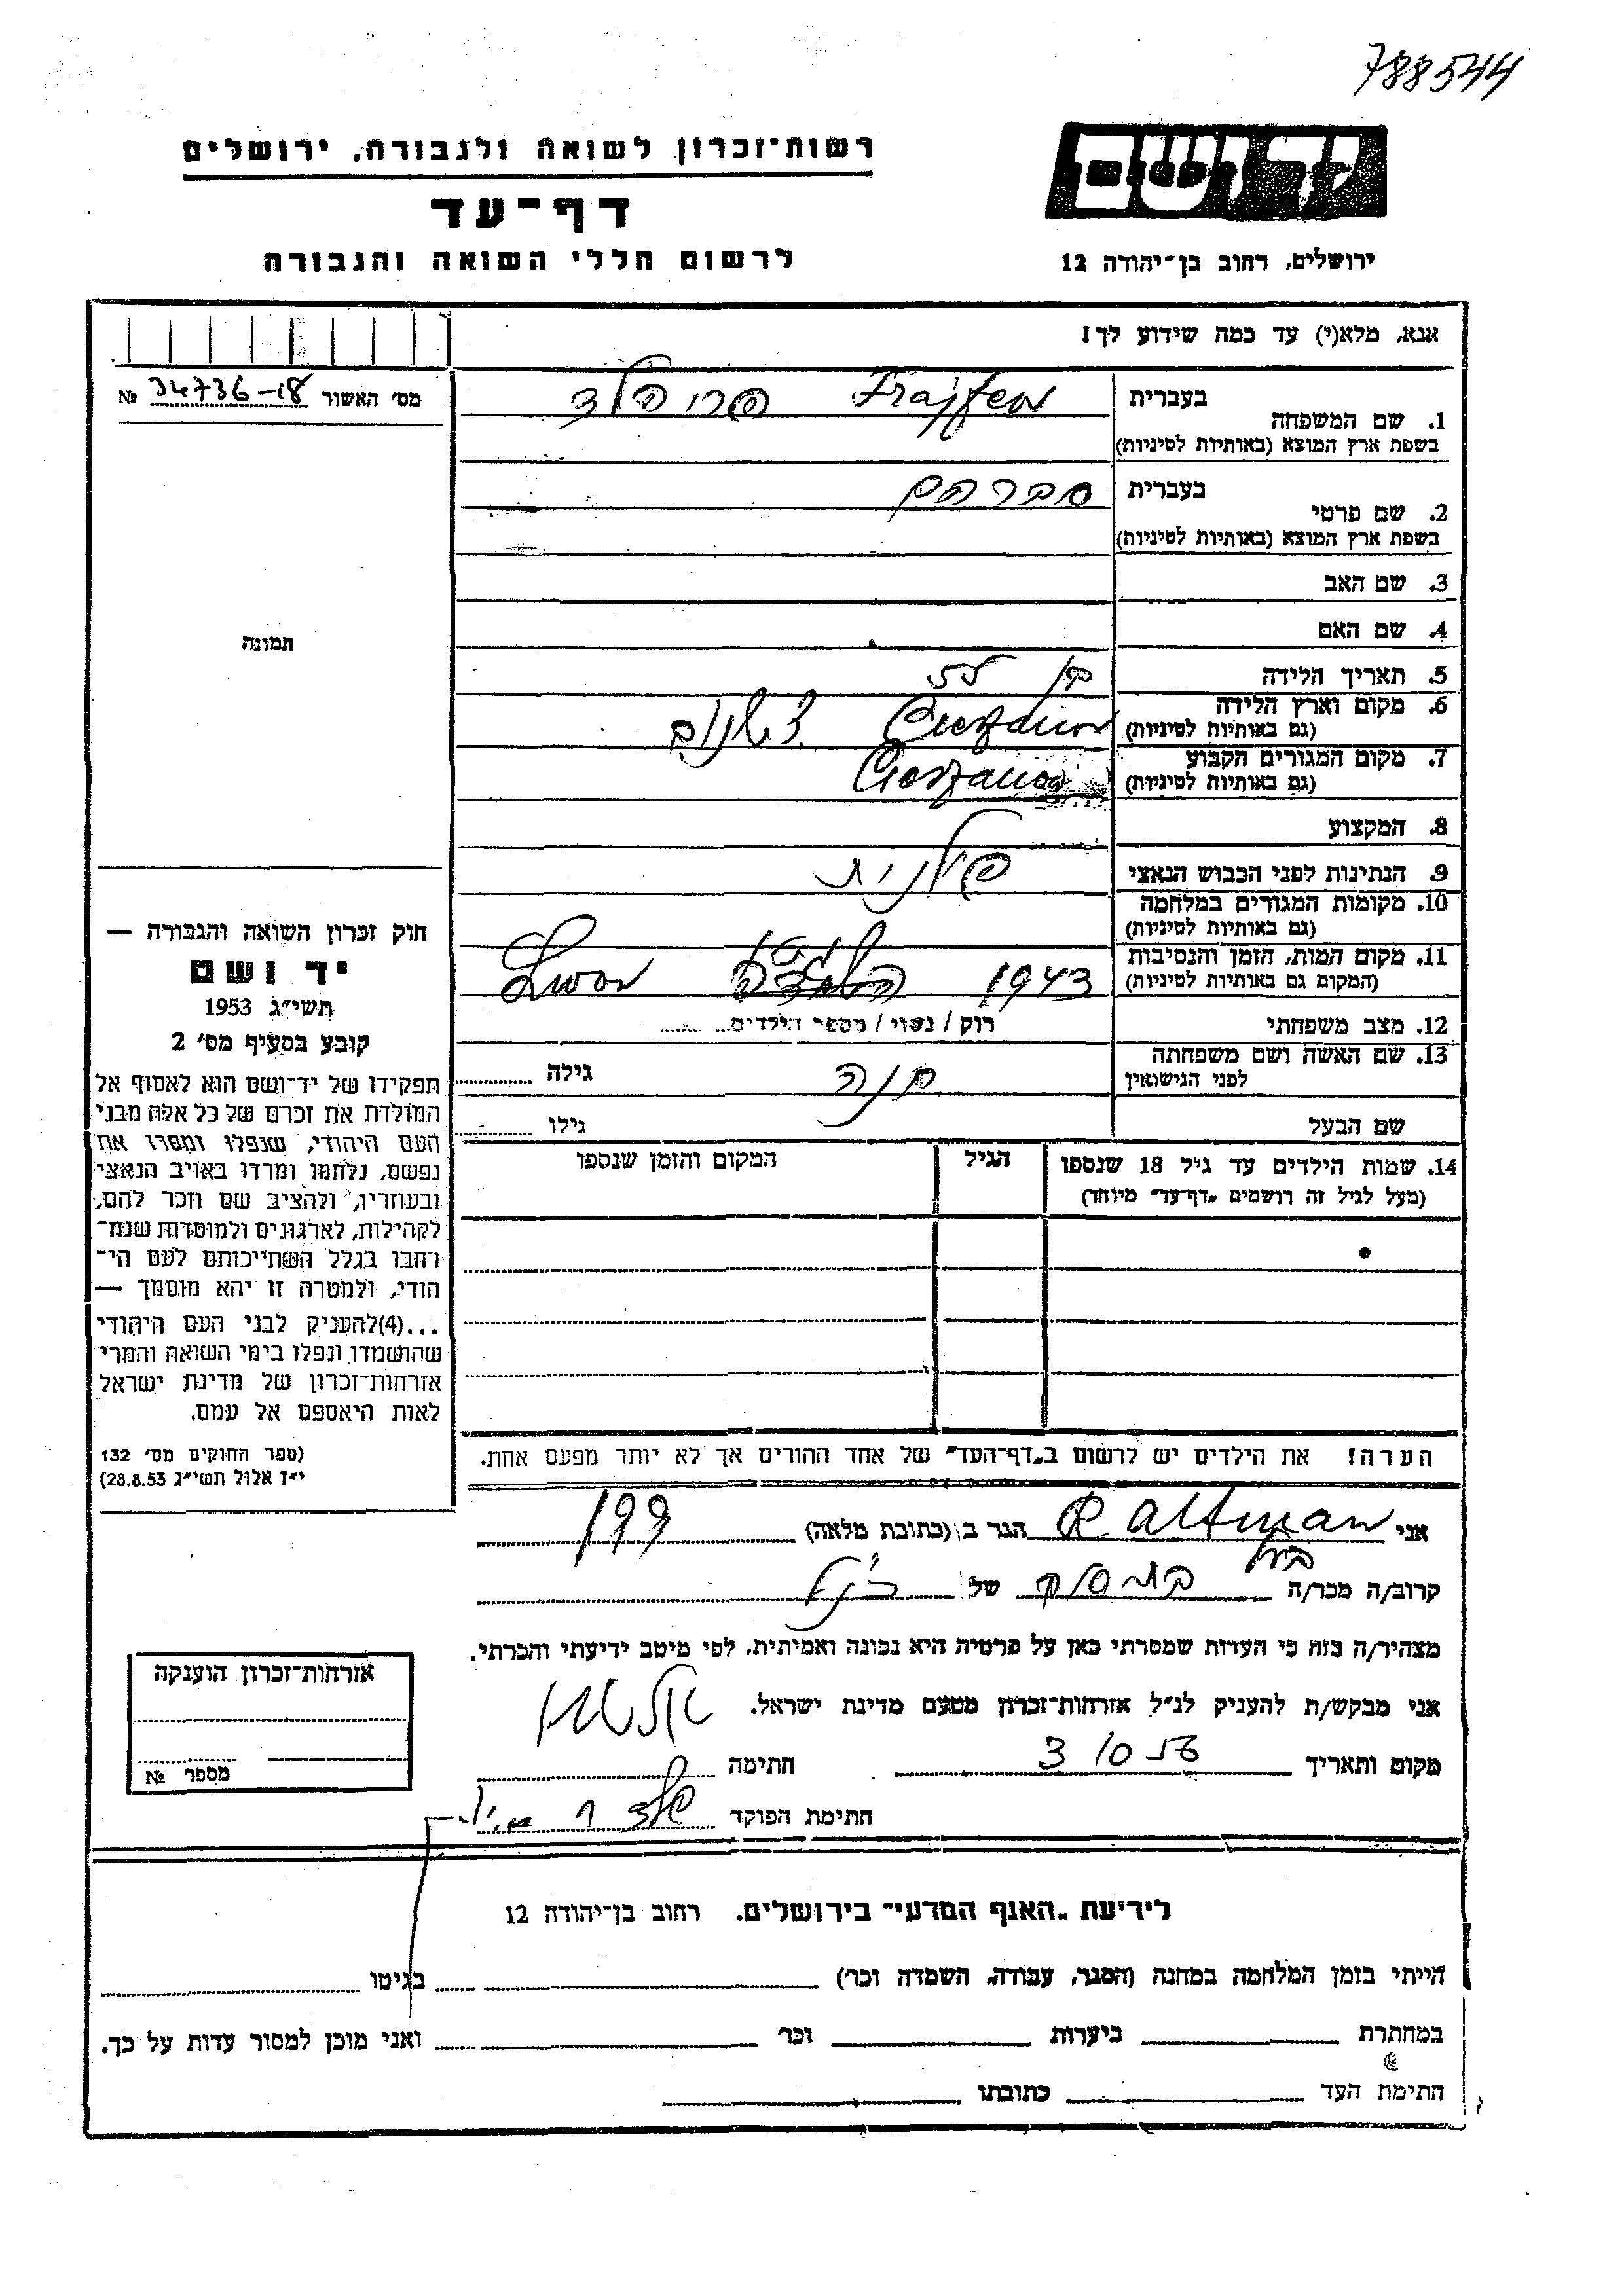 788544
יד ושם
ירושלים, רחוב בן-יהודה 12
רשות-זכרון לשואה ולגבורה, ירושלים
דף-עד
לרשום חללי השואה והגבורה
אנא, מלא(י) עד כמה שידוע לך!
מס' האשור 34736-18 №
תמונה
חוק זכרון השואה והגבורה —
יד ושם
תשי״ג 1953
קובע בסעיף מס' 2
תפקידו של יד-ושם הוא לאסוף אל
המולדת את זכרם של כל אלה מבני
העם היהודי, שנפלו ומסרו את
נפשם, נלחמו ומרדו באויב הנאצי
ובעוזריו, ולהציב שם וזכר להם,
לקהילות, לארגונים ולמוסדות שנח-
רחבו בגלל השתייכותם לעם הי-
הודי, ולמטרה זו יהא מוסמך —
...(4)להעניק לבני העם היהודי
שהושמדו ונפלו בימי השואה והמרי
אזרחות-זכרון של מדינת ישראל
לאות היאספם אל עמם.
(ספר החוקים מס' 132
י״ז אלול תשי״ג 28.8.53)
בעברית
1. שם המשפחה
בשפת ארץ המוצא (באותיות לטיניות)
בעברית אברהם
2. שם פרטי
בשפת ארץ המוצא (באותיות לטיניות)
3. שם האב
4. שם האם
5. תאריך הלידה בן
6. מקום וארץ הלידה
(גם באותיות לטיניות) Cieszanow
7. מקום המגורים הקבוע
(גם באותיות לטיניות) Cieszanow
8. המקצוע
9. הנתינות לפני הכבוש הנאצי פולנית
10. מקומות המגורים במלחמה
(גם באותיות לטיניות)
11. מקום המות, הזמן והנסיבות
(המקום גם באותיות לטיניות) 1943 Lwow
12. מצב משפחתי רוק / נשוי / מספר הילדים
13. שם האשה ושם משפחתה
לפני הנישואין חנה גילה
שם הבעל גילו
14. שמות הילדים עד גיל 18 שנספו הגיל המקום והזמן שנספו
(מעל לגיל זה רושמים „דף-עד״ מיוחד)
הערה! את הילדים יש לרשום ב„דף-העד״ של אחד ההורים אך לא יותר מפעם אחת.
אני R Altman הגר ב (כתובת מלאה)
קרוב/ה מכר/ה של
מצהיר/ה בזה כי העדות שמסרתי כאן על פרטיה היא נכונה ואמיתית, לפי מיטב ידיעתי והכרתי.
אני מבקש/ת להעניק לנ״ל אזרחות-זכרון מטעם מדינת ישראל.
מקום ותאריך חתימה
חתימת הפוקד
אזרחות-זכרון הוענקה
מספר №
לידיעת „האגף המדעי״ בירושלים, רחוב בן-יהודה 12
הייתי בזמן המלחמה במחנה (הסגר, עבודה, השמדה וכר׳) בגיטו
במחתרת ביערות וכר׳ ואני מוכן למסור עדות על כך.
חתימת העד כתובתו